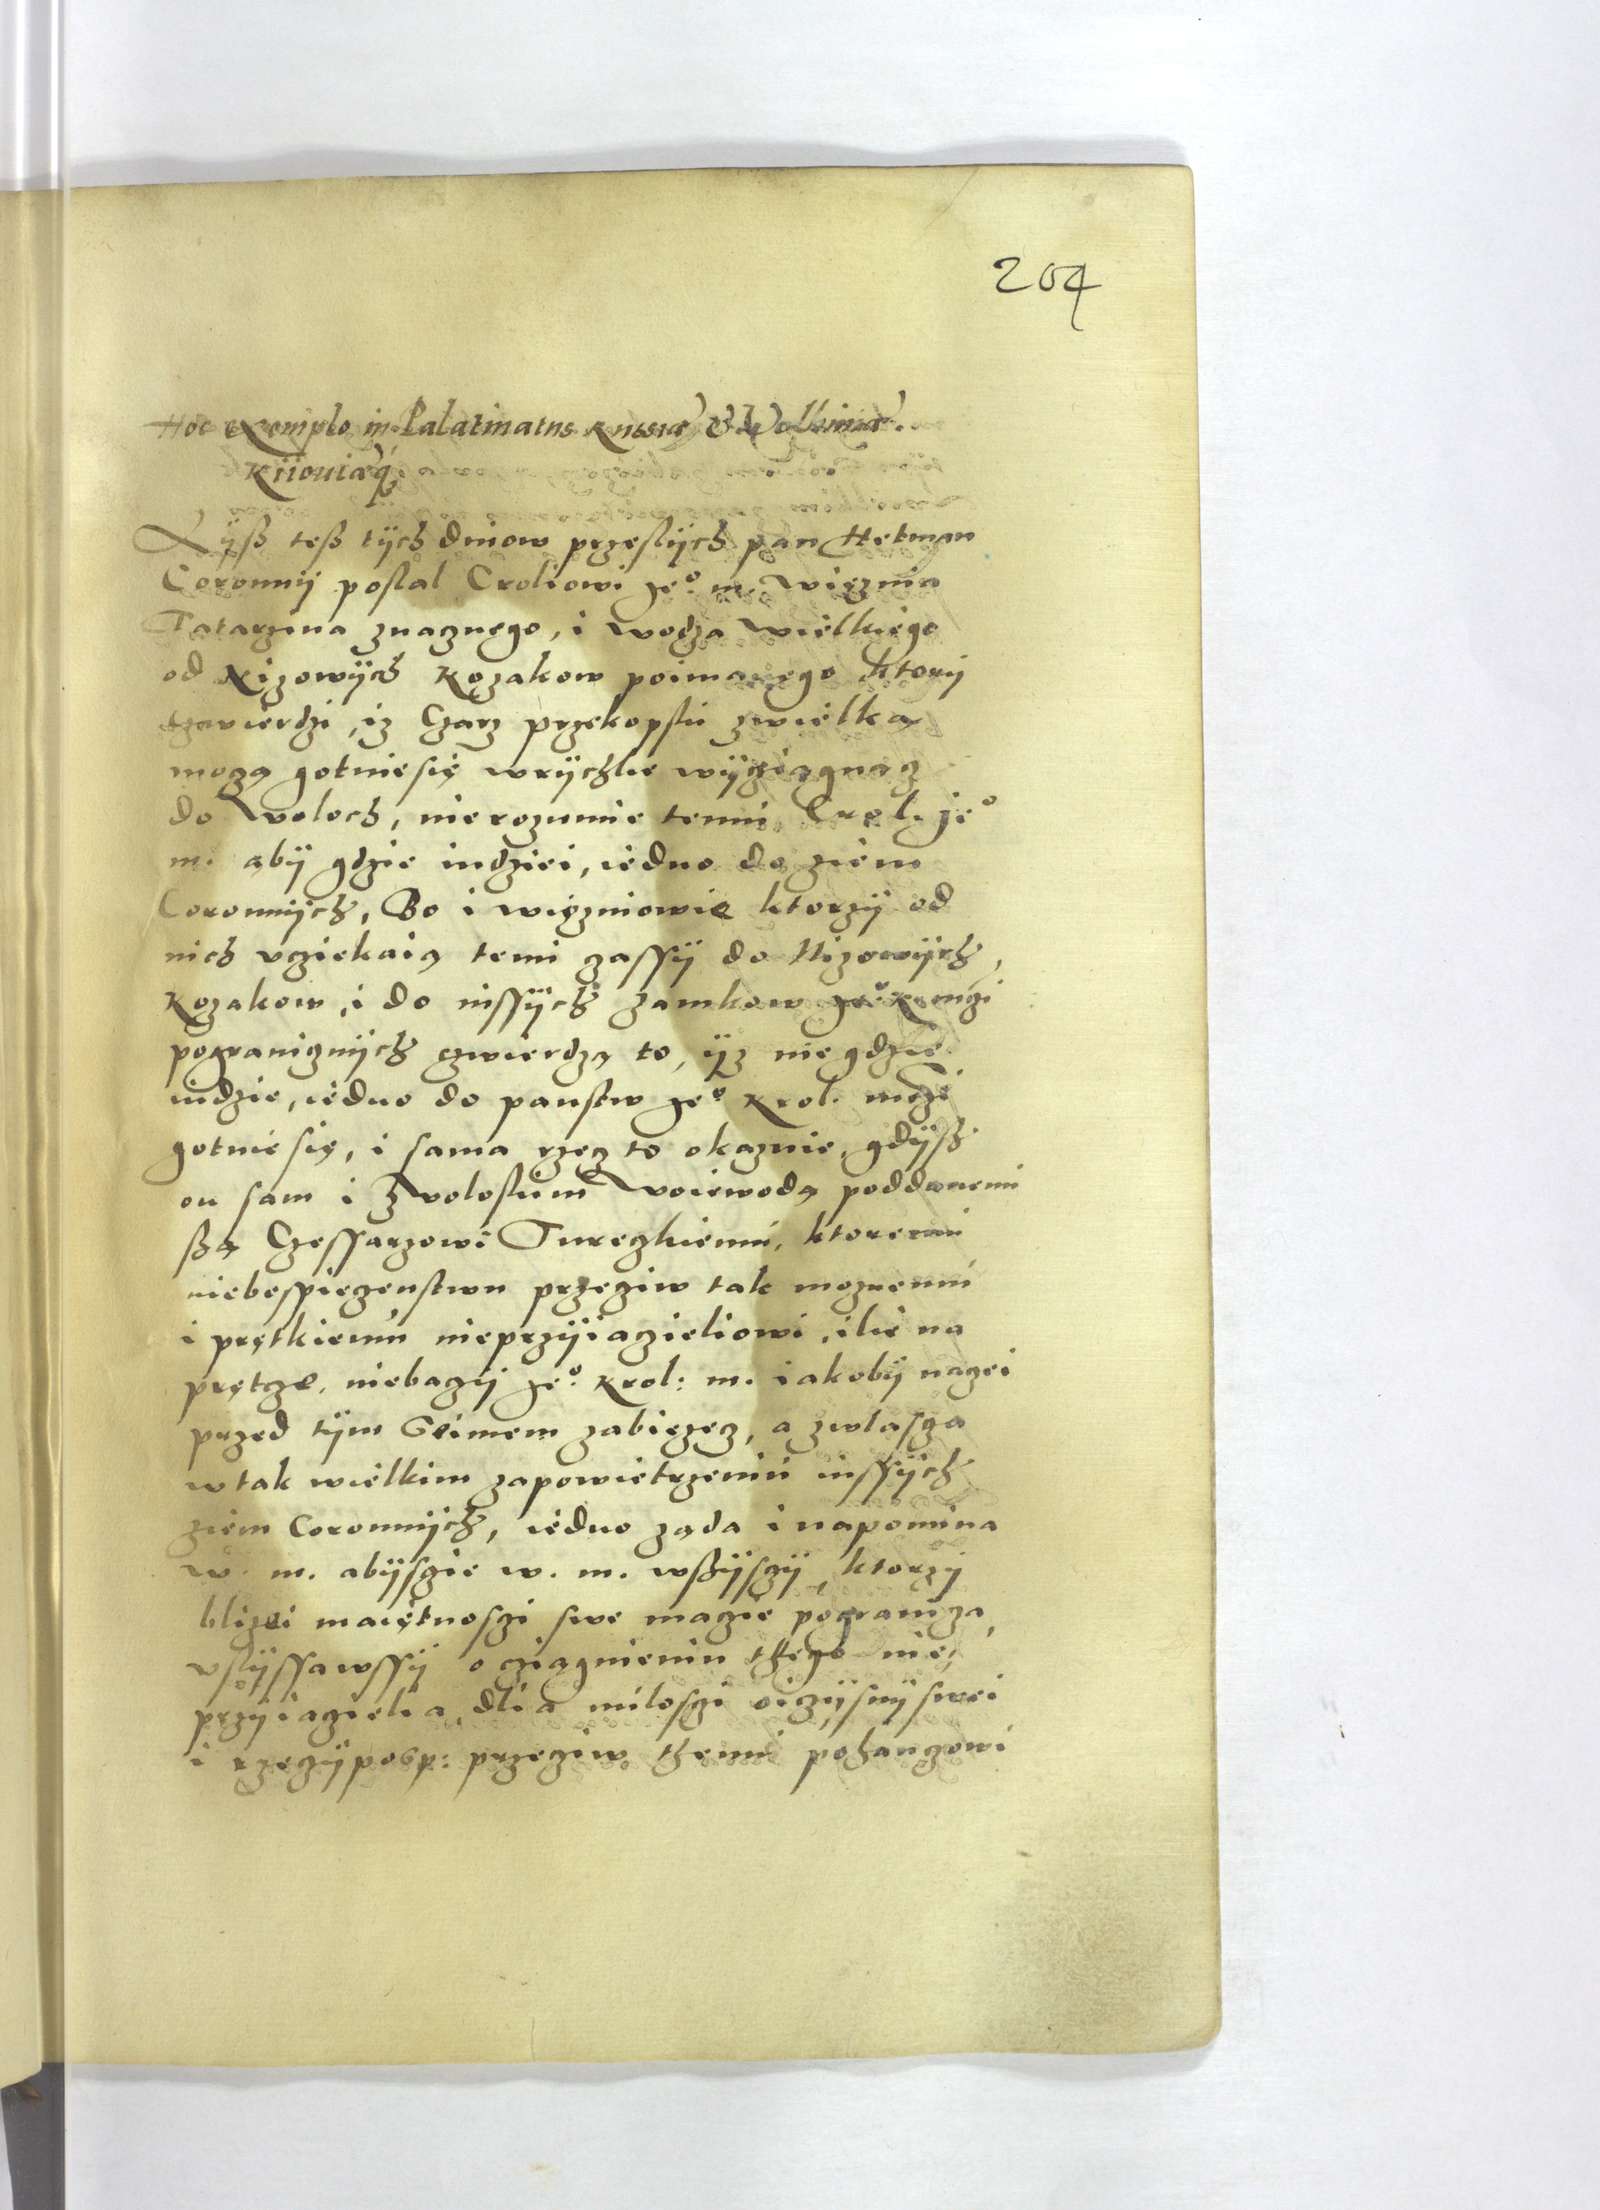 204
Hoc exemplo in Palatinatus Russiæ & Wolhiniæ.
Kiiouiæq;
Iÿß teß tÿch dniow przeslÿch pan Hetman
Coronnÿ poslal Croliowi Jeº m. więznia
Tatarzina znacznego, i wodza wielkiego
od Nizowÿch Kozakow poimanego ktorÿ
twierdzi, iz Czarz przekopski zwielką
moczą gotuie się wrÿchlie wÿcziągnącz
do Woloch, nie rozumie temu Crol. Jeº
m. abÿ gdzie indziei, iedno do ziem
Coronnÿch, Bo i więzniowie ktorzÿ od
nich vcziekaią temi czassÿ do Nizowÿch
Kozakow, i do inssÿch zamkow Jeº K mczi
pogranicznÿch twierdzą to, ÿz nie gdzie
indzie, iedno do panstw Jeº Krol. mczi
gotuie się, i sama rzecz to okazuie, gdÿß
on sam i z woloskim Woiewodą poddanemi
ßą Czessarzowi Tureczkiemu, ktoremu
niebespieczenstwu przecziw tak moznemu
i prętkiemu nieprzÿiaczieliowi, ilie na
prętcze, niebaczÿ Jeº Krol: m. iakobÿ naczei
przed tÿm Seimem zabiezecz, a zwlascza
w tak wielkim zapowietrzeniu inssÿch
ziem Coronnÿch, iedno ząda i napomina
w. m. abÿsczie w. m. wßÿsczÿ, ktorzÿ
blizei maiętnosczi swe maczie pogranicza,
vslÿssawssÿ o cziągnieniu tego nie
przÿiacielia, dlia milosczi oiczÿsnÿ swei
i rzeczÿposp: przecziw themu pohanczowi